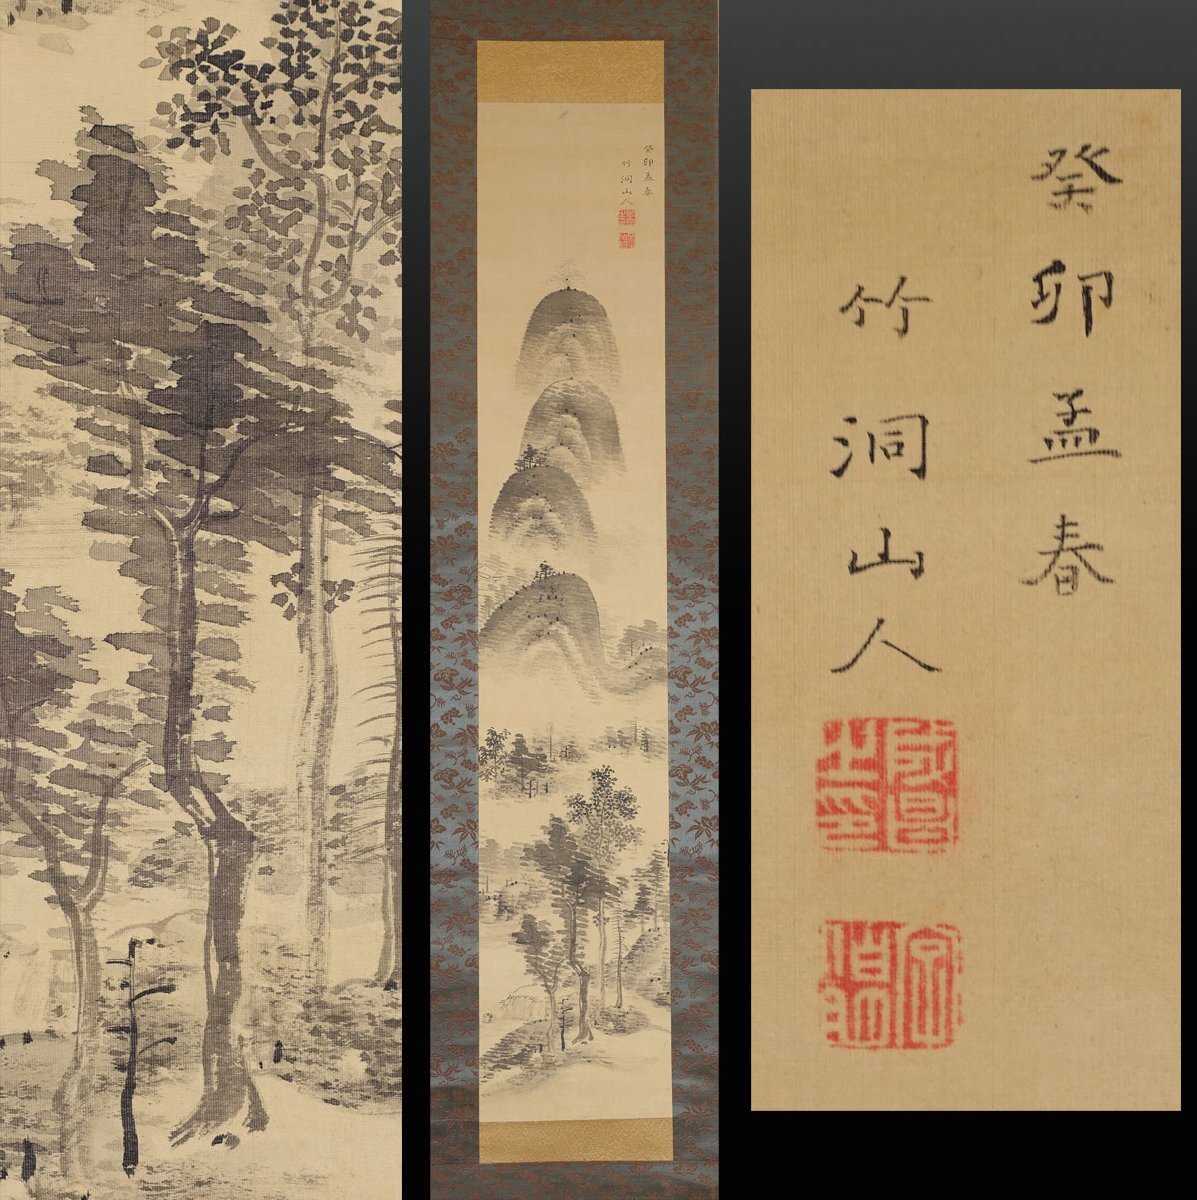 癸卯孟春
竹洞山人
癸卯孟春
竹洞山人